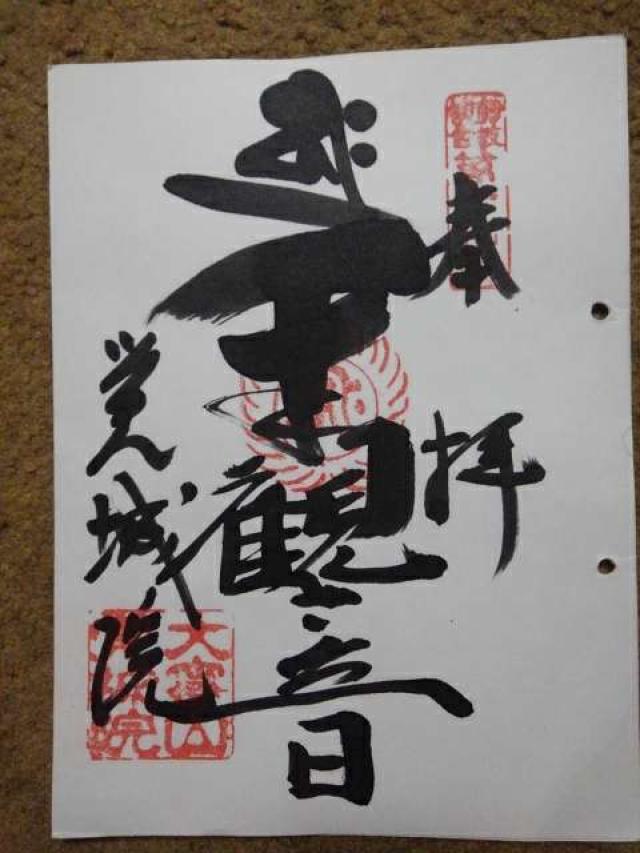 奉拝
千手観音
覚城院
大寳山
覚城院